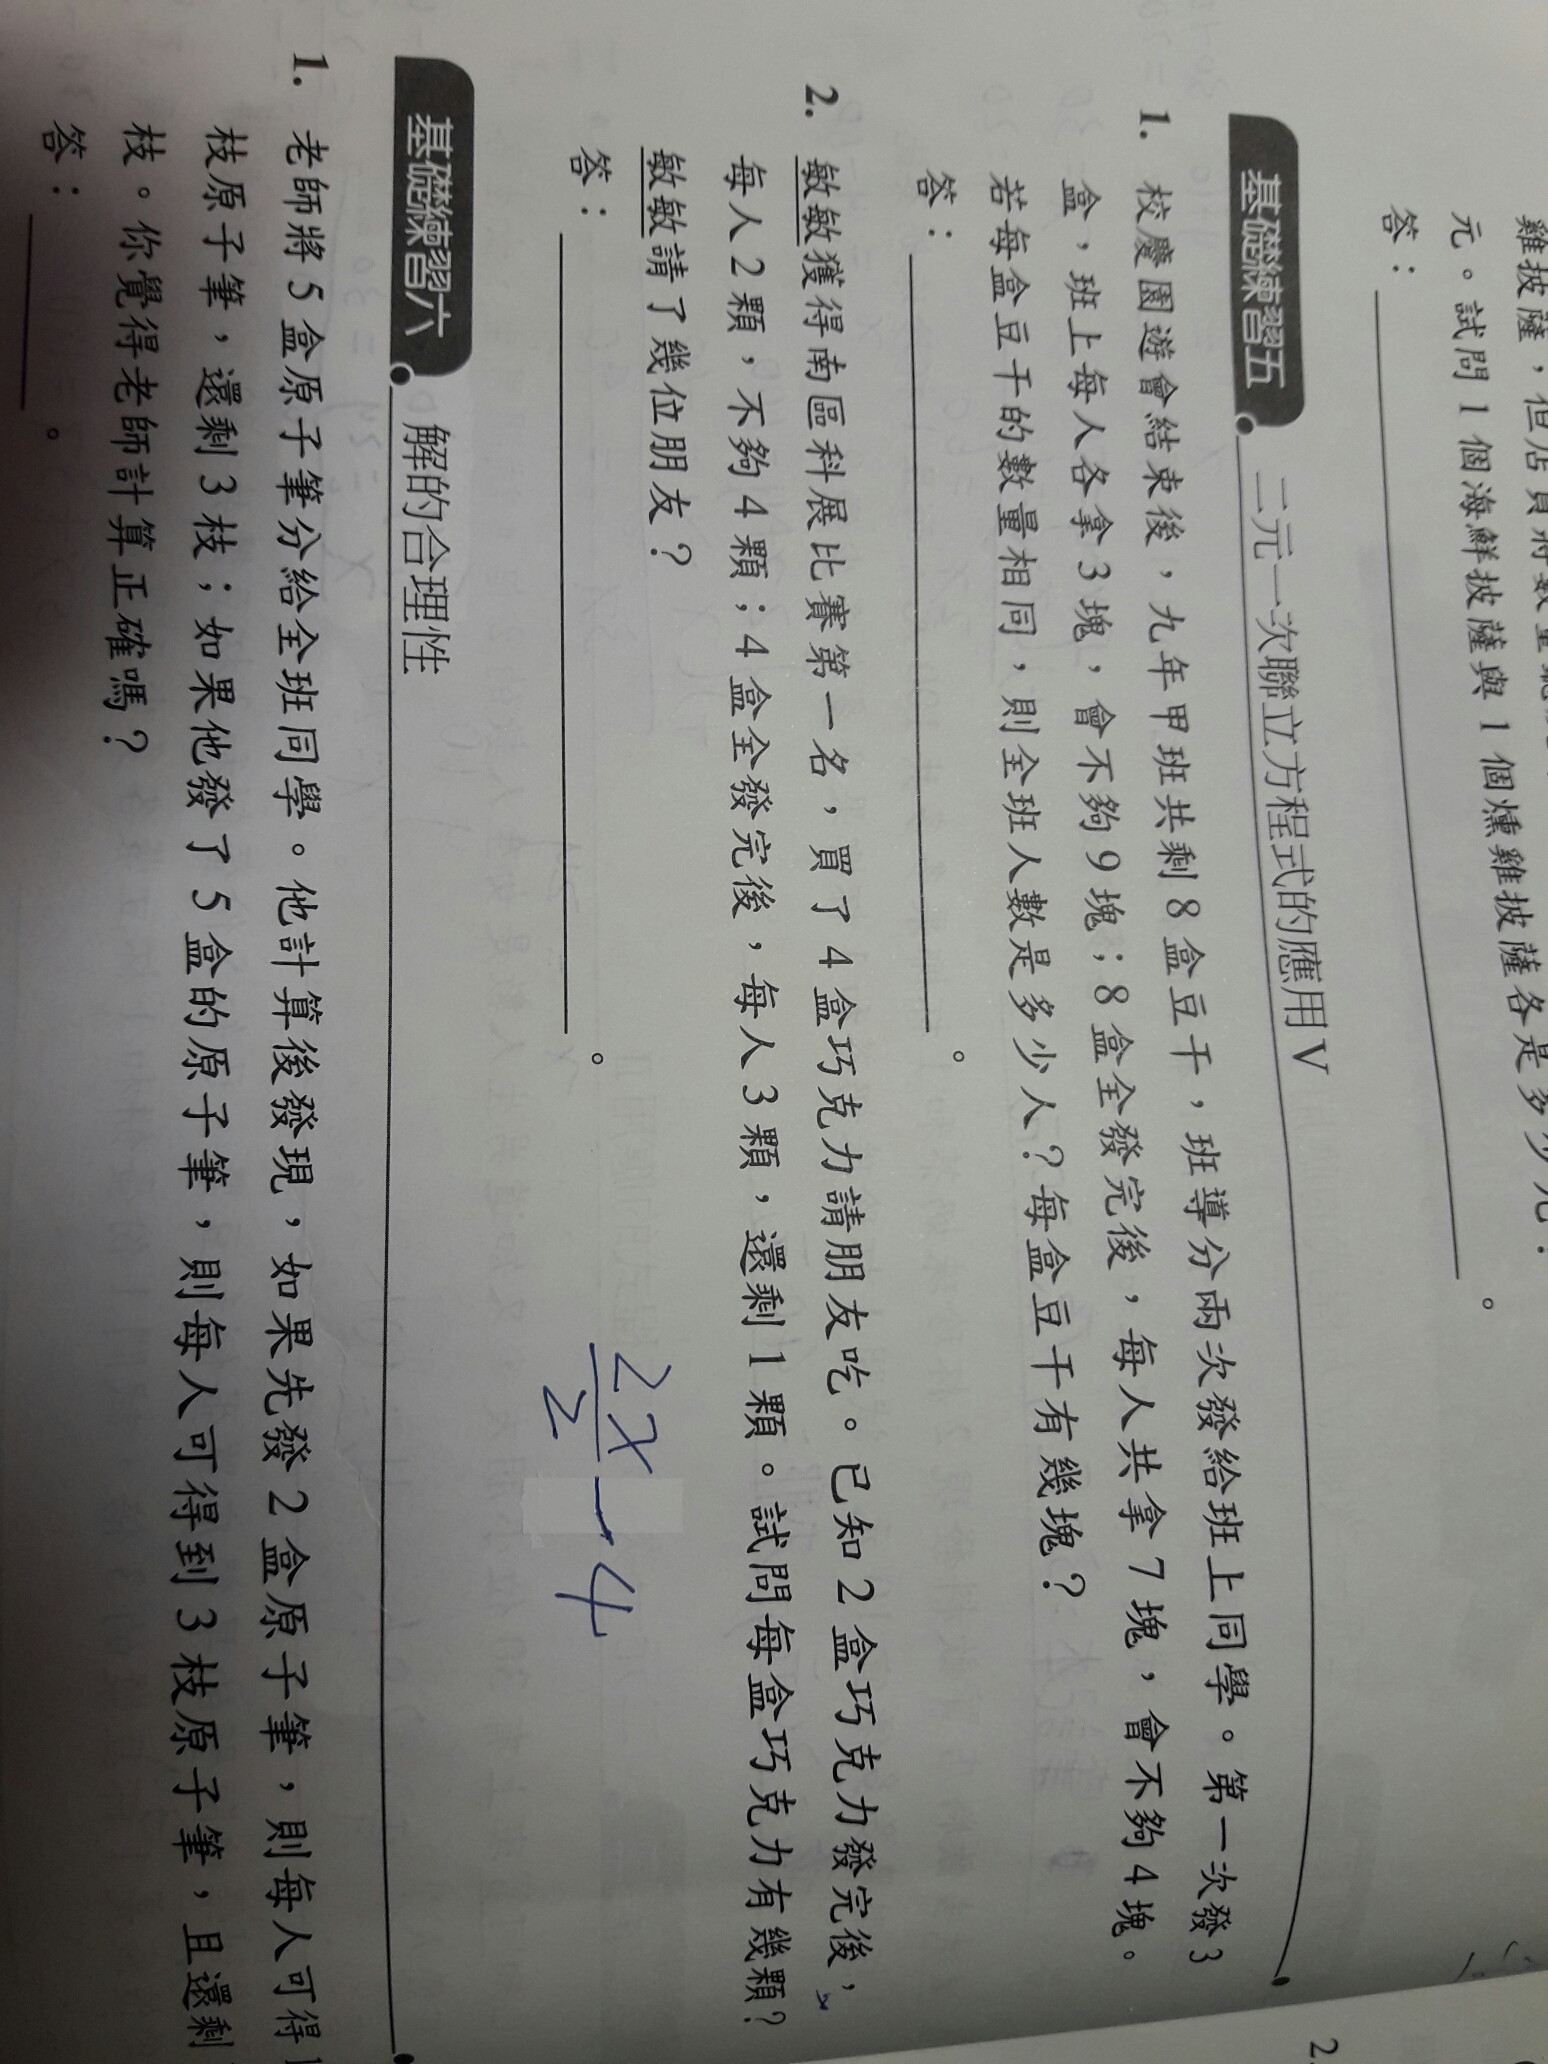 雞披薩，但店員將數量
元。試問1個海鮮披薩與1個燻雞披薩各是多少元？
答：。
基礎練習五 二元一次聯立方程式的應用Ⅴ
1. 校慶園遊會結束後，九年甲班共剩8盒豆干，班導分兩次發給班上同學。第一次發3
盒，班上每人各拿3塊，會不夠9塊；8盒全發完後，每人共拿7塊，會不夠4塊。
若每盒豆干的數量相同，則全班人數是多少人？每盒豆干有幾塊？
答：。
2. 敏敏獲得南區科展比賽第一名，買了4盒巧克力請朋友吃。已知2盒巧克力發完後，
每人2顆，不夠4顆；4盒全發完後，每人3顆，還剩1顆。試問每盒巧克力有幾顆？
敏敏請了幾位朋友？
答：。
2x/2 - 4
基礎練習六 解的合理性
1. 老師將5盒原子筆分給全班同學。他計算後發現，如果先發2盒原子筆，則每人可得1
枝原子筆，還剩3枝；如果他發了5盒的原子筆，則每人可得到3枝原子筆，且還剩
枝。你覺得老師計算正確嗎？
答：。
2.